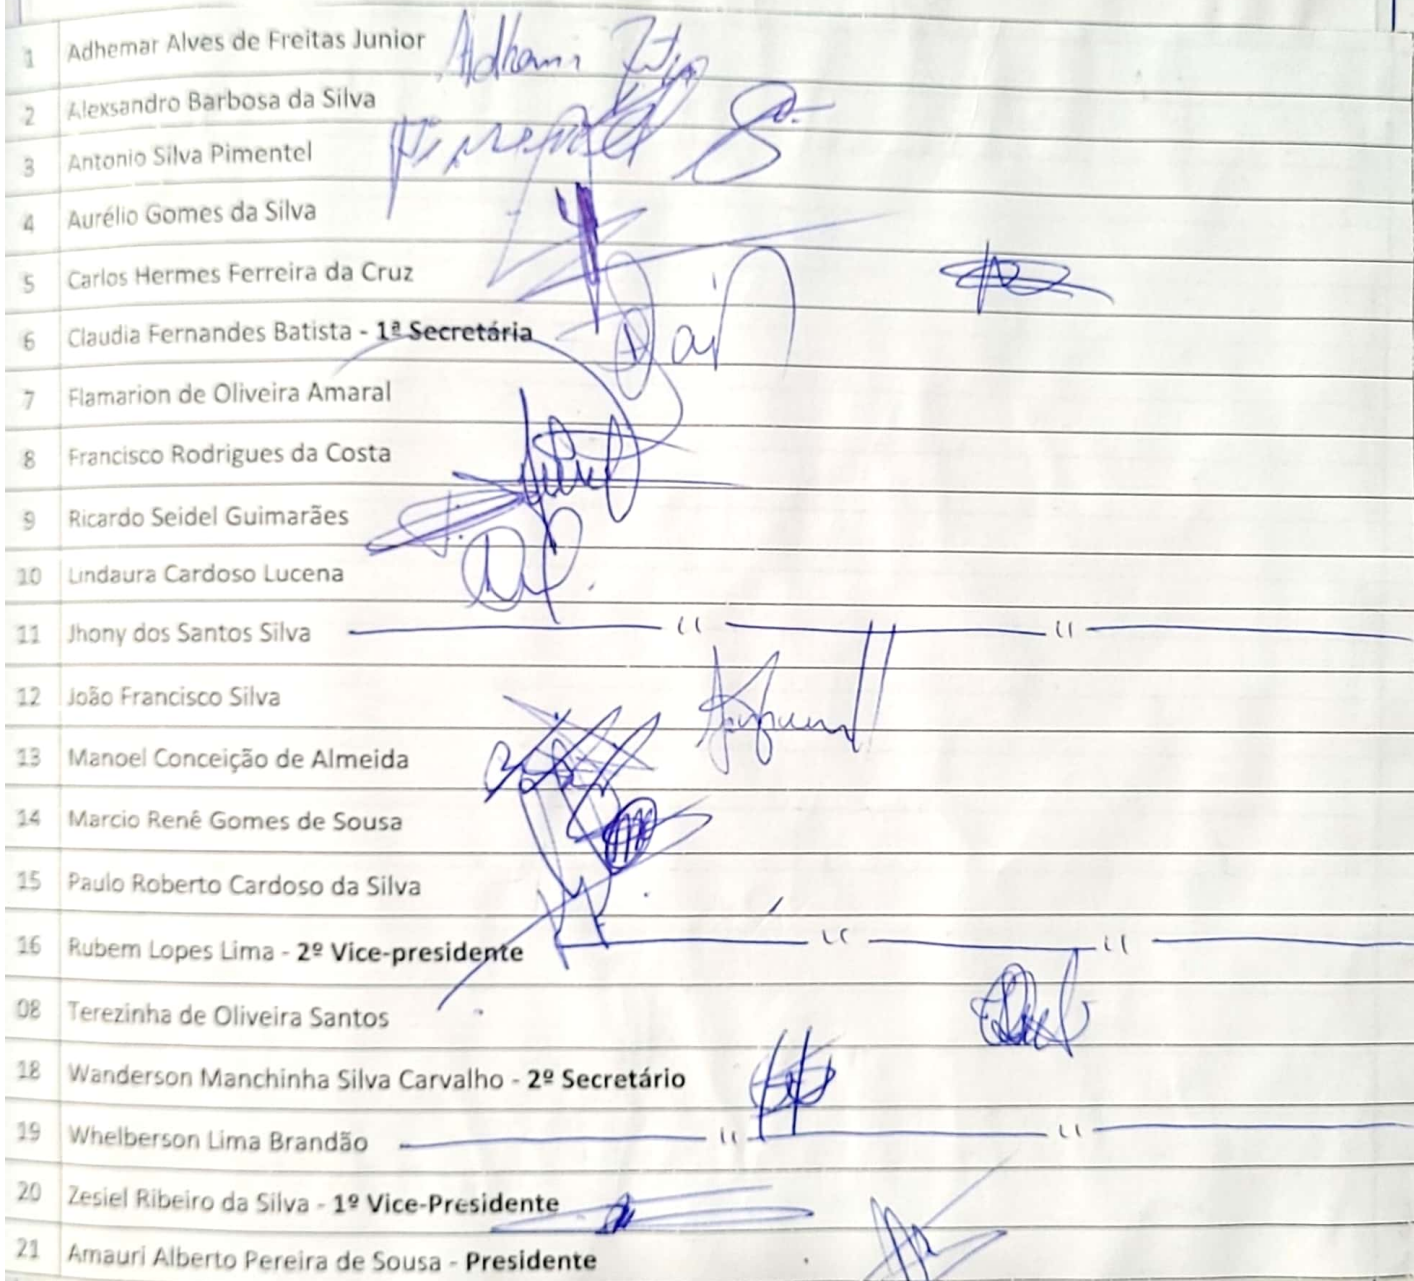 1 Adhemar Alves de Freitas Junior Adhemar
2 Alexsandro Barbosa da Silva
3 Antonio Silva Pimentel
4 Aurélio Gomes da Silva
5 Carlos Hermes Ferreira da Cruz
6 Claudia Fernandes Batista - 1ª Secretária
7 Flamarion de Oliveira Amaral
8 Francisco Rodrigues da Costa
9 Ricardo Seidel Guimarães
10 Lindaura Cardoso Lucena
11 Jhony dos Santos Silva
12 João Francisco Silva
13 Manoel Conceição de Almeida
14 Marcio Renê Gomes de Sousa
15 Paulo Roberto Cardoso da Silva
16 Rubem Lopes Lima - 2º Vice-presidente
08 Terezinha de Oliveira Santos
18 Wanderson Manchinha Silva Carvalho - 2º Secretário
19 Whelberson Lima Brandão
20 Zesiel Ribeiro da Silva - 1º Vice-Presidente
21 Amauri Alberto Pereira de Sousa - Presidente